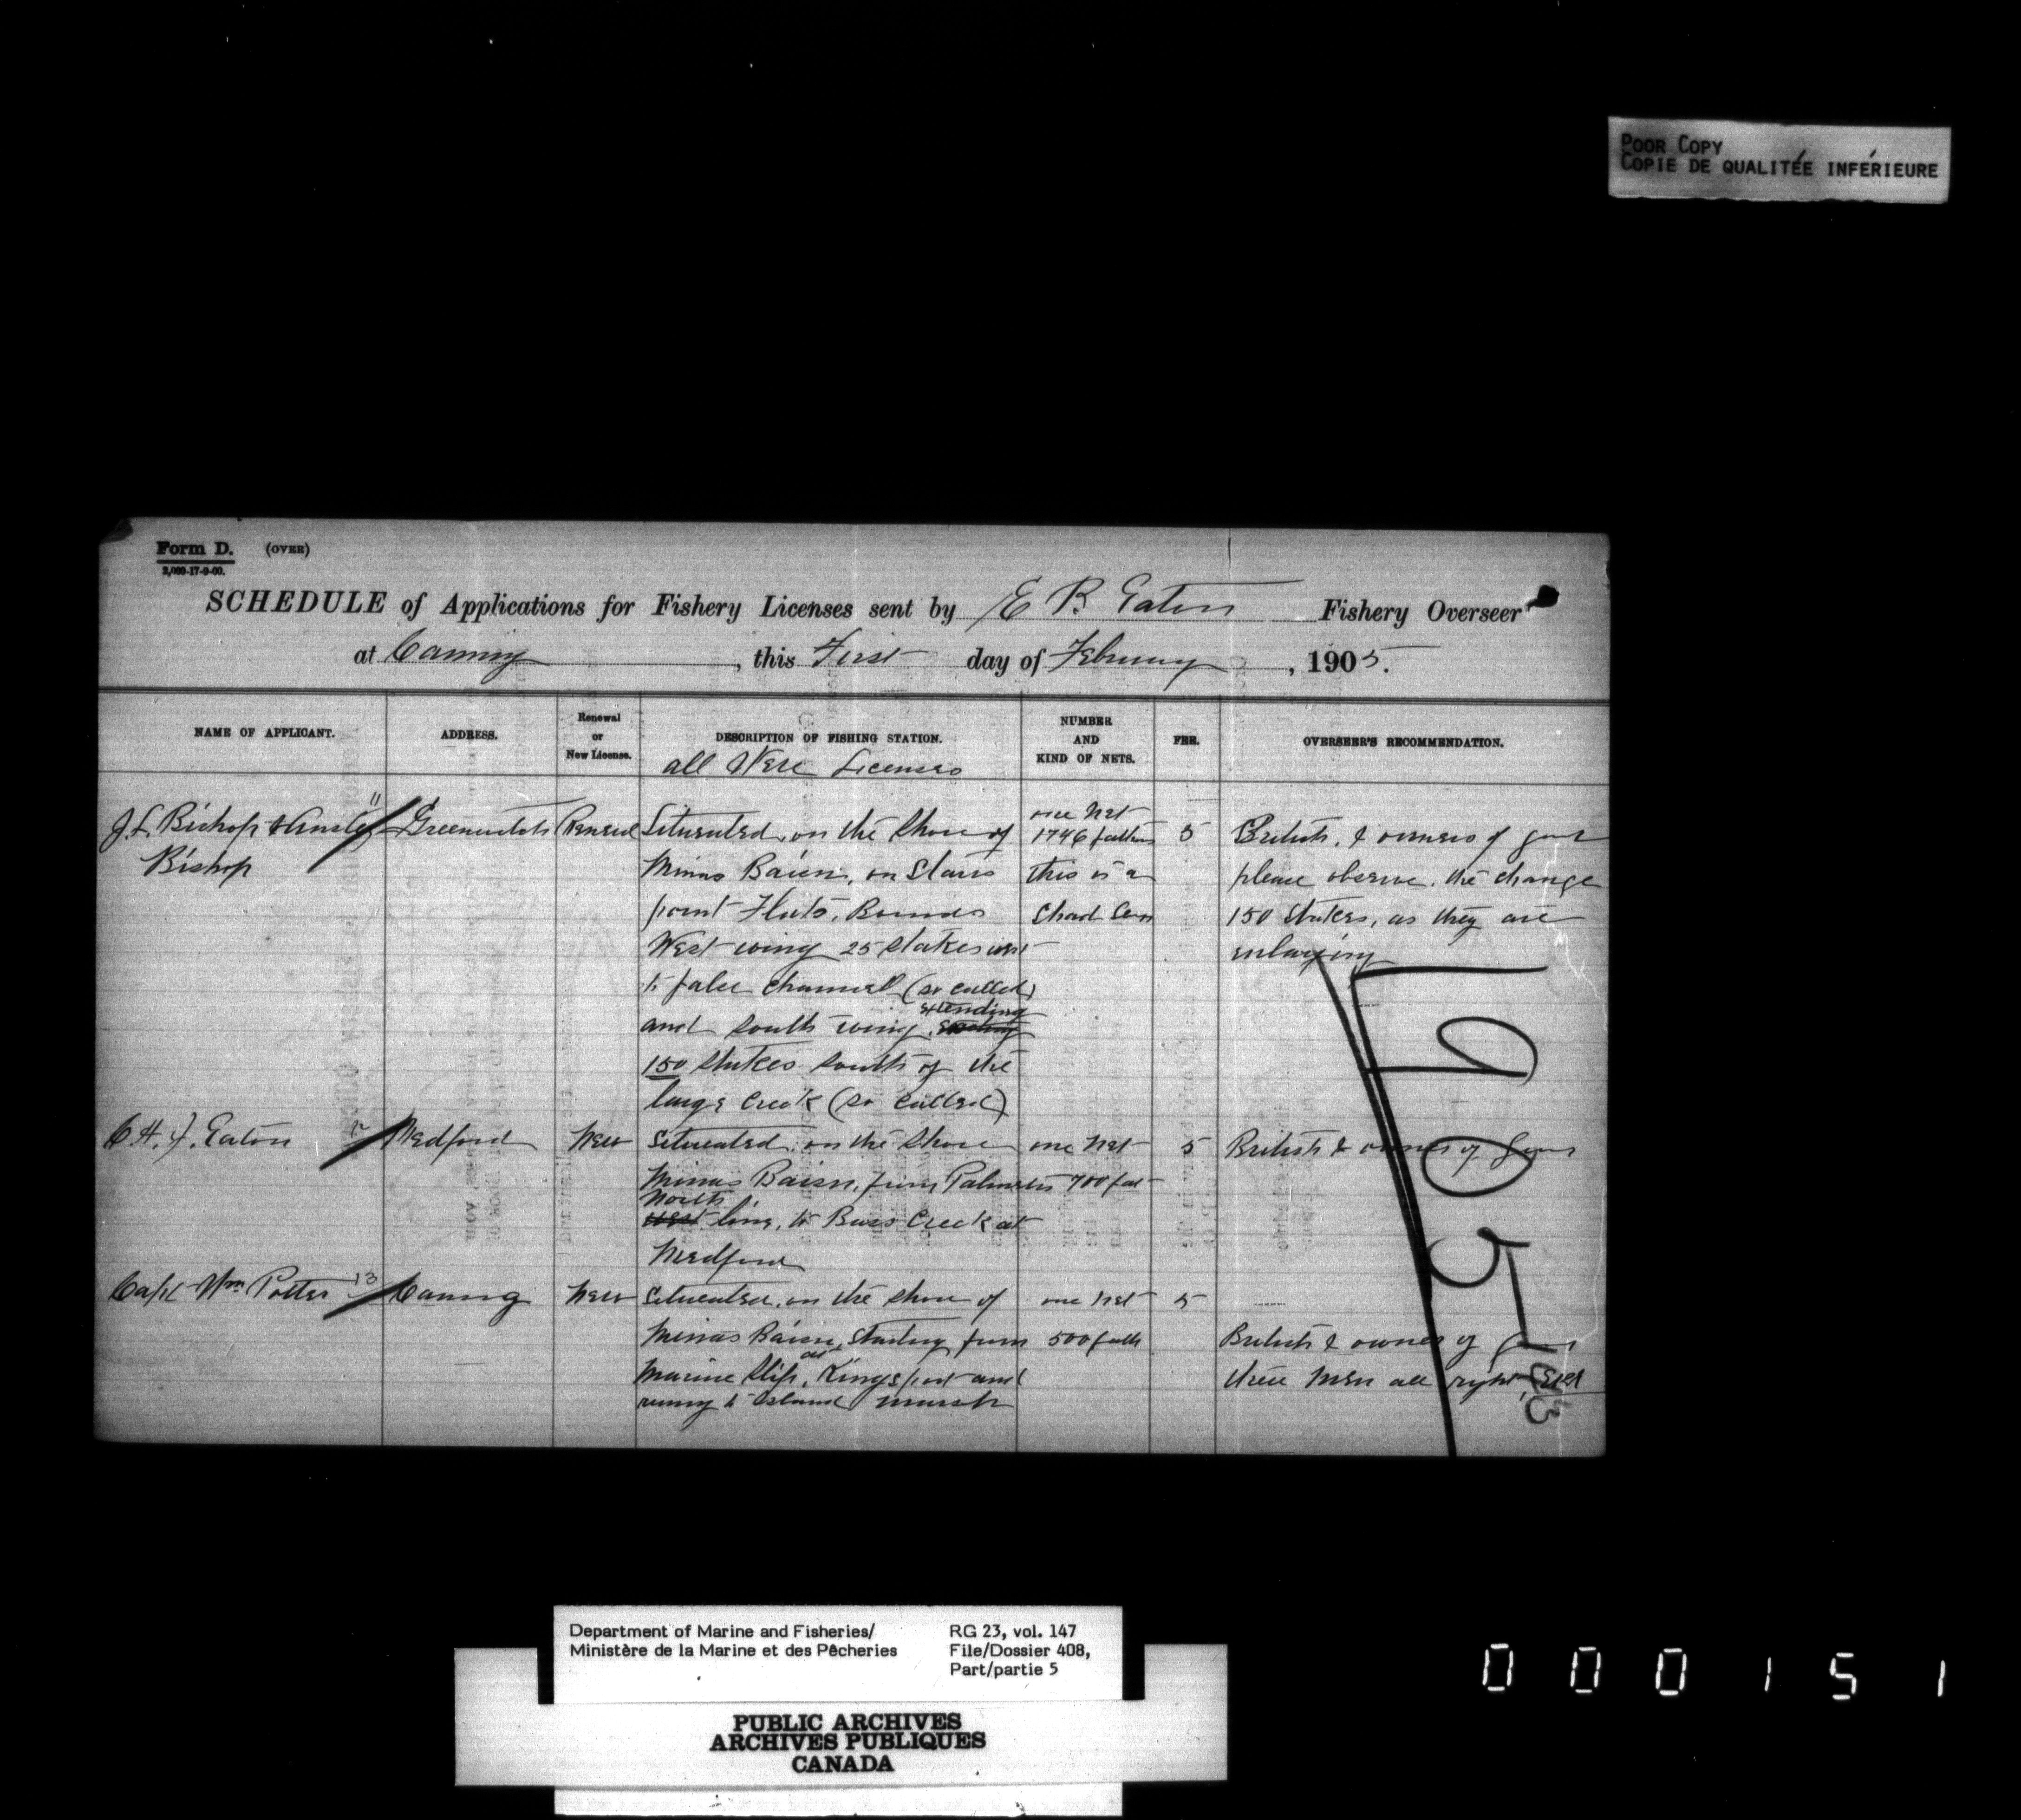 POOR COPY
COPIE DE QUALITÉE INFÉRIEURE
Form D. (OVER)
2,000-17-9-00.
SCHEDULE of Applications for Fishery Licenses sent by E B Eaton Fishery Overseer
at Canning, this First day of February, 1905.
NAME OF APPLICANT. ADDRESS. Renewal or New License. DESCRIPTION OF FISHING STATION. NUMBER AND KIND OF NETS. FEE. OVERSEER'S RECOMMENDATION.
all Were Licenses
11
J. L. Bishop & Greenwich Situated, on the Shore of one net 1746 fathoms 5 British, & owners of gear
Bishop Minas Baisn, on Starrs this is a please observe. the change
point Flats, Bounds Shad 150 Stakes, as they are
West wing 25 Stakes west enlarging
to false channel (so called)
extending
and South wing
150 Stakes South of the
large Creek (so called)
C. H. F. Eaton 12 Medford New Situated, on the Shore one net 5 British & owner of gear
Minas Baisn, from Palmeters 700 fat
North
west line, to Bass Creek at
Medford
Capt Wm Potter 13 Canning New Situated, on the Shore of one net 5
Minas Baisn, Starting from 500 fath British & owner of gear
Marine Slip, at Kingsport and these men all right
runing to Island marsh
1905
Department of Marine and Fisheries/
Ministère de la Marine et des Pêcheries
RG 23, vol. 147
File/Dossier 408,
Part/partie 5
PUBLIC ARCHIVES
ARCHIVES PUBLIQUES
CANADA
000151